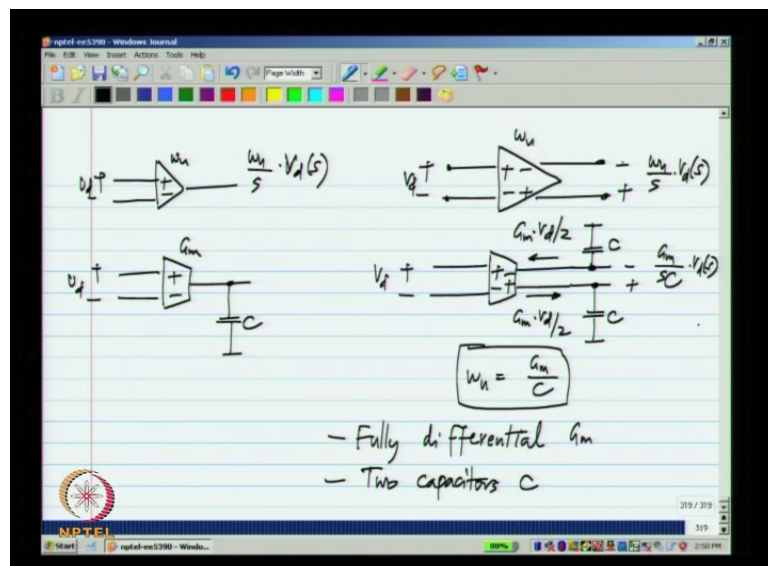 nptel-ee5390 - Windows Journal
File Edit View Insert Actions Tools Help
Page Width
B I
ωu
Vd + −
+ −
ωu/s · Vd(s)
ωu
Vd + −
+ − − +
− +
ωu/s · Vd(s)
Gm
Vd + −
+ −
C
Gm·Vd/2
C
Vd + −
+ − − +
− +
Gm/sC · Vd(s)
Gm·Vd/2
C
ωu = Gm/C
- Fully differential Gm
- Two capacitors C
NPTEL
319 / 319
319
Start
nptel-ee5390 - Windo...
100%
2:50 PM